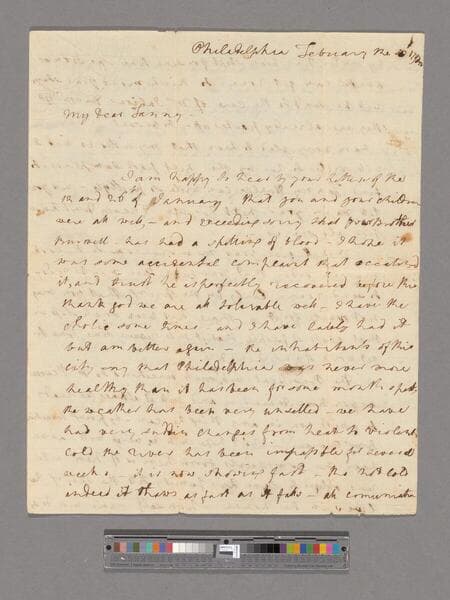 Philadelphia February the
My Dear Fanny
I am happy to hear by your letters of the
12 and 26th of January that you and your children
were all well, – and exceeding sorry that poor Brother
Burwell has had a spitting of blood – I hope it
was some accidental complaint that occationed
it, and trust he is perfectly recovered before this
thank god we are all tolarable well – I have the
cholic some times and I have lately had it
but am better again – the inhabitants of this
city say that Philadelphia was never more
healthy than it has been for some month past,
the weather has been very unsetled – we have
had very sudden changes from heat to violent
cold the river has been impassible for several
weeks. it is now snowing fast – tho not cold
indeed it thaws as fast as it falls – all comunication